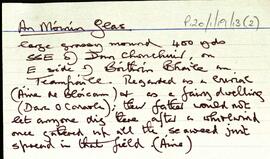 An Móinín Glas P20/1/9/3(2)
large grassy mound 400 yds
SSE of Dún Chonchúir, on
E side of Bóithrín Bhaile an
Teampaill. Regarded as a
(Áine de Blácam) & as a fairy dwelling
(Dara Ó Conaola); their father would not
let anyone dig there after a whirlwind
once gathered up all the seaweed just
spread in that field (Áine)